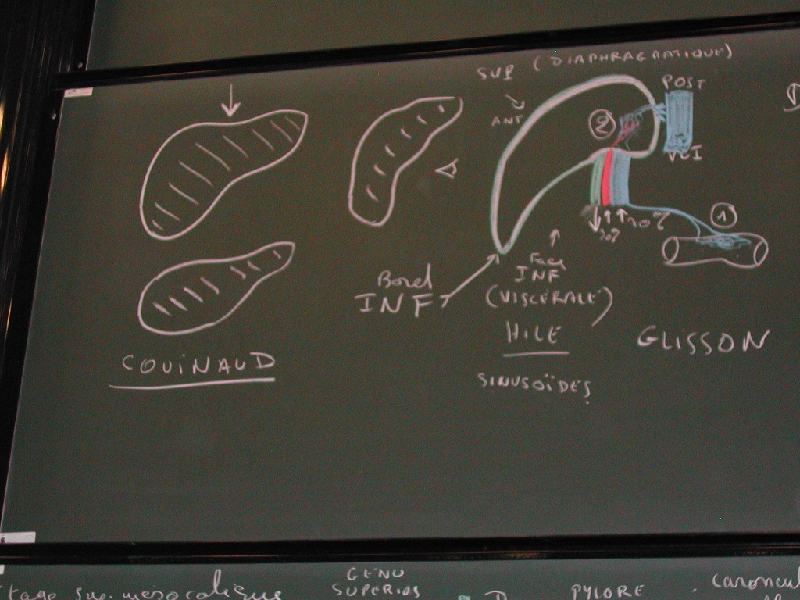 SUP (DIAPHRAGMATIQUE)
POST
ANT
2
VCI
1
70%
Bord
INF
Face
INF
(VISCÉRALE)
HILE
GLISSON
COUINAUD
SINUSOÏDES
GENU
SUPERIUS
PYLORE